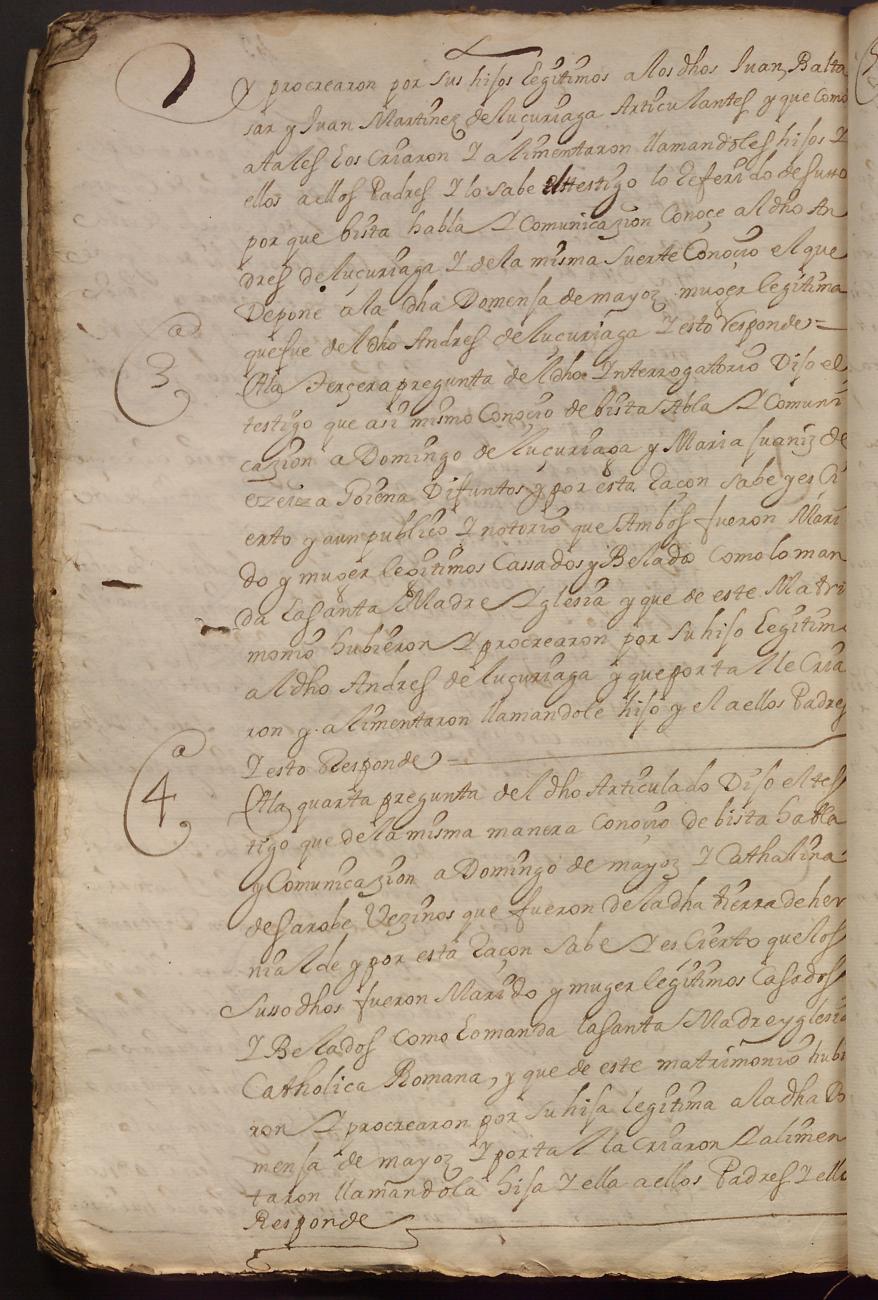 y procrearon por sus hijos legitimos a los dhos Juan, Balta
sar y Juan Martinez de luçuriaga Articulantes y que como
a tales los Criaron Y alimentaron llamandoles hijos Y
ellos a ellos Padres Y lo sabe el testigo lo Referido de suso
por que bista habla Y Comunicazion Conoçe al dho An
dres de luçuriaga Y de la misma suerte Conoçio el que
Depone a la dha Domensa de mayoz muger legitima
que fue del dho Andres de luçuriaga Y esto Responde =
3
A la terçera pregunta del dho Interrogatorio Dijo el
testigo que asi mismo Conoçio de bista Abla Y Comuni
cazion a Domingo de luçuriaga y Maria Juaniz de
ezeiza Goiena Difuntos y por esta Raçon sabe y es Ci
erto y aun publico Y notorio que Ambos fueron Mari
do y muger legitimos Cassados y Belados Como lo man
da la santa Madre Yglesia y que de este Matri
monio hubieron Y procrearon por su hijo legitimo
al dho Andres de luçuriaga y que por tal le Cria
ron y alimentaron llamandole hijo y el a ellos Padres
Y esto Responde
4
A la quarta pregunta del dho Articulado Dijo el tes
tigo que de la misma manera Conoçio de bista habla
y Comunicazion a Domingo de mayoz Y Cathalina
de sarobe Vezinos que fueron de la dha tierra de her
nialde y por esta Raçon sabe Y es Cierto que los
Susso dhos fueron Marido y muger legitimos Casados
Y Belados Como lo manda la santa Madre yglesia
Catholica Romana, y que de este matrimonio hubi
ron Y procrearon por su hija legitima a la dha Do
mensa de mayoz Y por tal la Criaron Y alimen
taron llamandola hija Y ella a ellos Padres Y ello
Responde